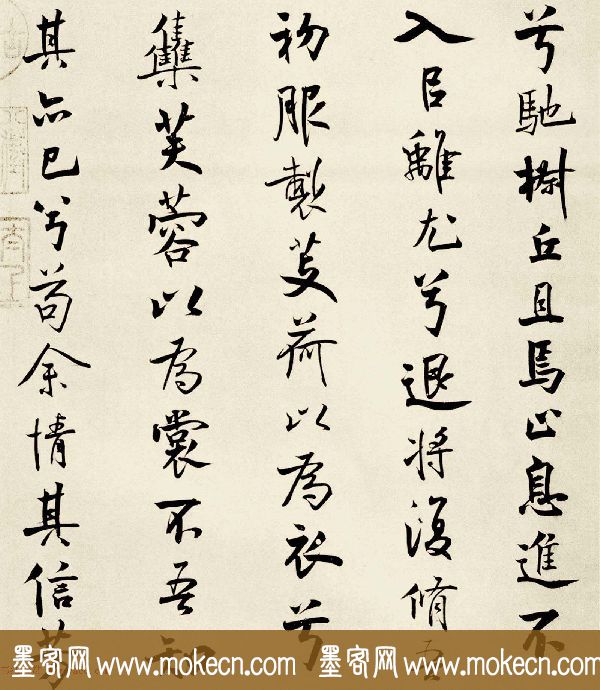 兮馳椒丘且焉止息進不
入㠯離尤兮退將復脩吾
初服製芰荷以為衣兮
雧芙蓉以為裳不吾知
其亦已兮苟余情其信芳
墨客网 www.mokecn.com 墨客网 www.mokecn.com